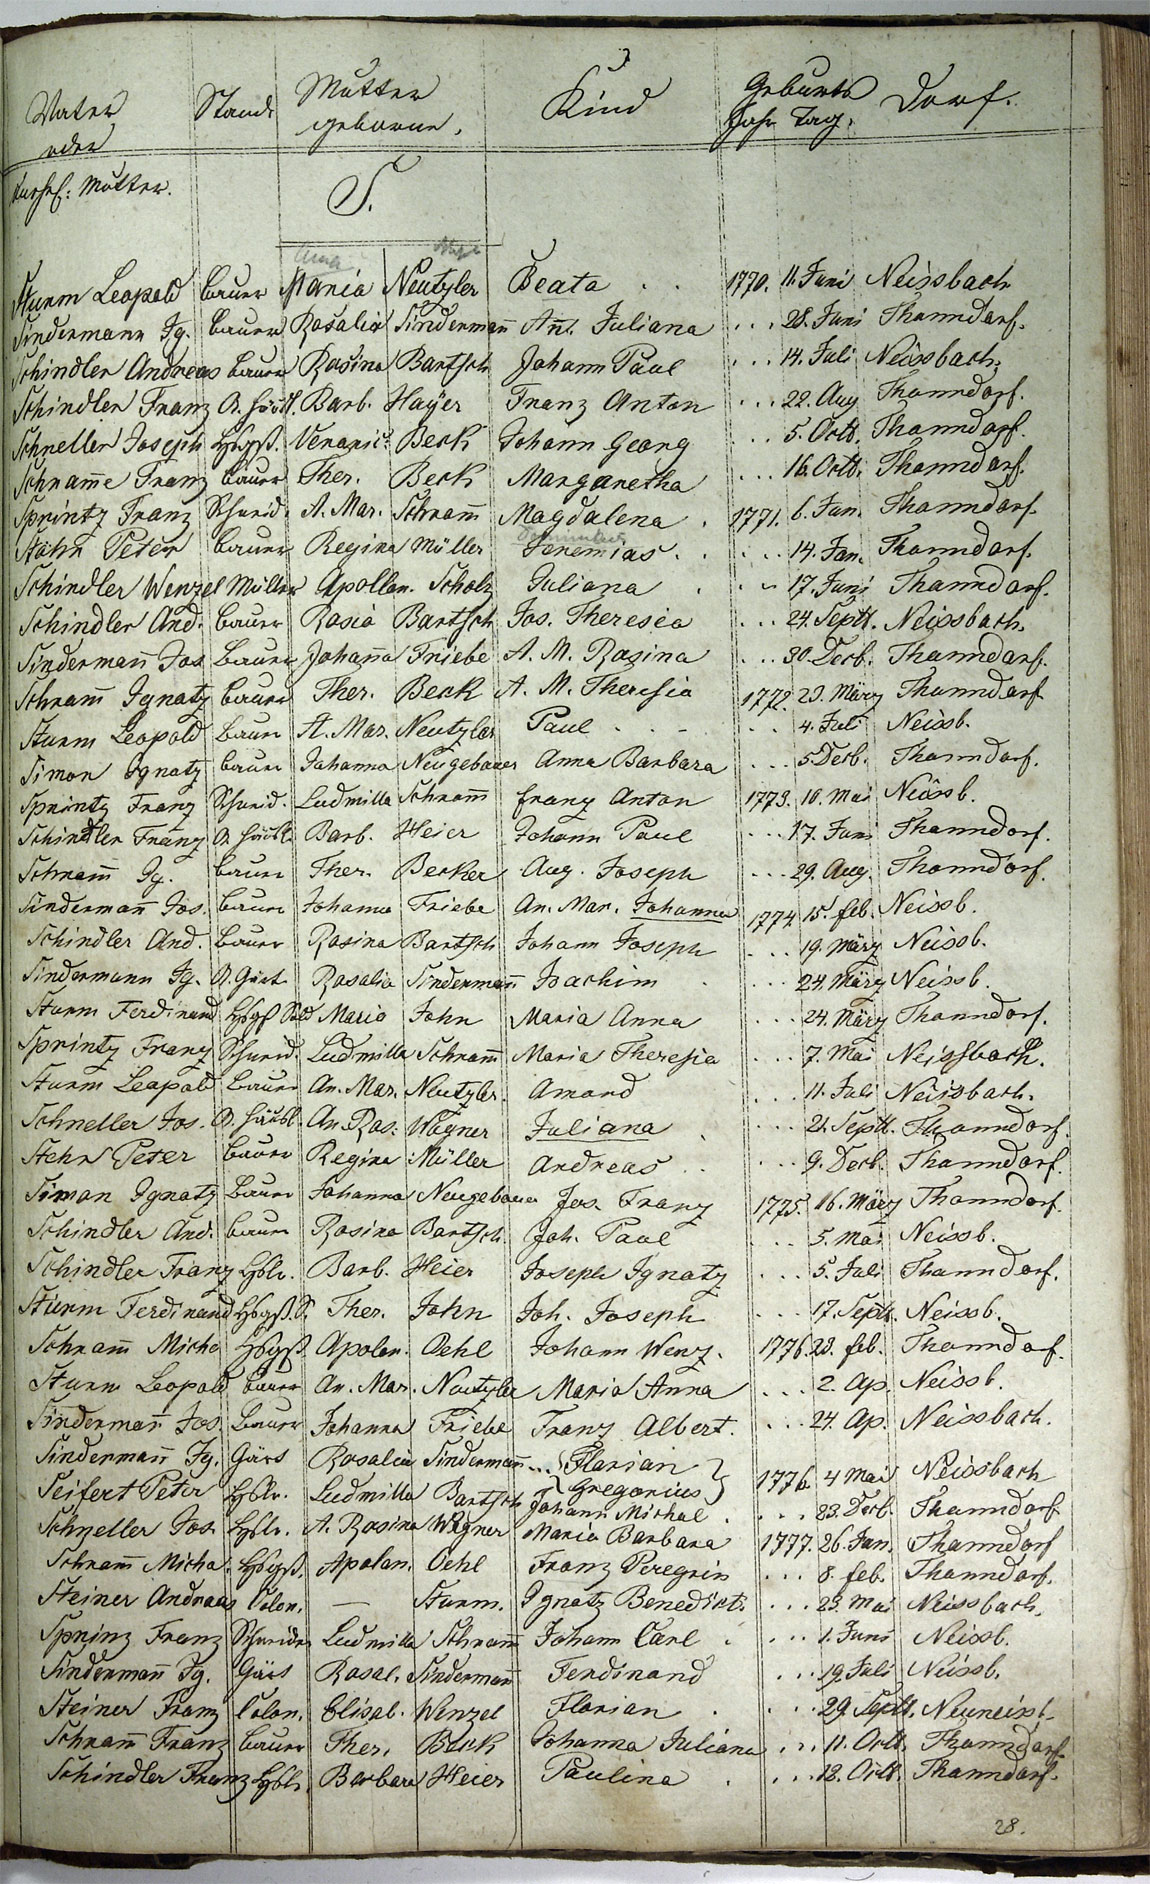 Vater Stand Mutter Kind Geburts Dorf.
oder geborene. Jahr Tag.
unehel: Mutter.
S.
Anna
Sturm Leopold Bauer Maria Neutzler Beata . . 1770. 11. Juni Neissbach
Sindermann Ig. Bauer Rosalia Sindermann̄ An̄. Juliana ... 28. Juni Thanndorf.
Schindler Andreas Bauer Rosina Bartsch Johann Paul ... 14. Juli Neissbach.
Schindler Franz A. Häusl. Barb. Hayer Franz Anton ... 22. Aug Thanndorf.
Schneller Joseph Hbgß. Veronic: Beck Johann Georg .. 5. Octb. Thanndorf.
Schram̄e Franz Bauer Ther. Beck Margaretha ... 16. Octb. Thanndorf.
Sprintz Franz Schneid. A. Mar. Schram̄ Magdalena . 1771. 6. Jan. Thanndorf.
Stöhr Peter Bauer Regina Müller Jeremias . . ... 14. Jan. Thanndorf.
Schindler Wenzel Müller Apollon. Scholz Juliana . .. 17. Juni Thanndorf.
Schindler And. Bauer Rosia Bartsch Jos. Theresia ... 24. Septb. Neissbach.
Sinderman̄ Jos Bauer Johan̄a Friebe A. M. Rosina ... 30. Decb. Thanndorf.
Schram̄ Ignatz Bauer Ther. Beck A. M. Theresia 1772. 23. März Thanndorf
Sturm Leopold Bauer A. Mar. Neutzler Paul . . . .. 4. Juli Neissb.
Simon Ignatz Bauer Johanna Neugebauer Anna Barbara ... 5 Decb. Thanndorf.
Sprintz Franz Schneid. Ludmilla Schram̄ Franz Anton 1773. 10. Mai Neissb.
Schindler Franz A. Häusl. Barb. Heier Johann Paul ... 17. Juni Thanndorf.
Schram̄ Ig. Bauer Ther. Becker Aug. Joseph ... 29. Aug. Thanndorf.
Sinderman̄ Jos. Bauer Johanna Friebe An. Mar. Johanna 1774 15. feb. Neissb.
Schindler And. Bauer Rosina Bartsch Johann Joseph ... 19. März Neissb.
Sindermann Ig. A. Gärt. Rosalia Sinderman̄ Joachim . ... 24. März Neissb.
Sturm Ferdinand Hbgß Sold Maria John Maria Anna ... 24. März Thanndorf.
Sprintz Franz Schneid. Ludmilla Schram̄ Maria Theresia ... 7. Mai Neissbach.
Sturm Leopold Bauer An. Mar. Neutzler. Amand ... 11. Juli Neissbach.
Schneller Jos. A. Häusl. An. Ros: Wagner Juliana . ... 21. Septb. Thanndorf.
Stehr Peter Bauer Regina Müller Andreas . . ... 9. Decb. Thanndorf.
Simon Ignatz Bauer Johanna Neugebauer Jos. Franz 1775. 16. März Thanndorf.
Schindler And. Bauer Rosina Bartsch. Joh. Paul ... 5. Mai Neissb.
Schindler Franz Hblr. Barb. Heier Joseph Ignatz ... 5. Juli Thanndorf.
Sturm Ferdinand Hbgß. S. Ther. John Joh. Joseph ... 17. Septb. Neissb.
Schram̄ Micha Hbgß Apolon. Oehl Johann Wenz. 1776. 23. feb. Thanndorf.
Sturm Leopold Bauer An. Mar. Neutzler Maria Anna ... 2. Ap. Neissb.
Sinderman̄ Jos. Bauer Johanna Friebe Franz Albert. ... 24. Ap. Neissbach.
Sinderman̄ Ig. Gärt Rosalia Sinderman̄ ... Florian
Gregorius 1776 4 Mai Neissbach
Seifert Peter Hblr. Ludmilla Bartsch Johann Michal . ... 23. Decb. Thanndorf
Schneller Jos. Hblr. A. Rosina Wagner Maria Barbara 1777. 26. Jan. Thanndorf
Schram̄ Micha. Hbgß. Apolon. Oehl Franz Peregrin ... 8. feb. Thanndorf.
Steiner Andreas Colon. — Sturm. Ignatz Benedict. ... 23. Mai Neissbach.
Sprinz Franz Schneider Ludmilla Schram̄ Johann Carl . ... 1. Juni Neissb.
Sinderman̄ Ig. Gärt Rosal. Sinderman̄ Ferdinand ... 19. Juli Neissb.
Steiner Franz Colon. Elisab. Wenzel Florian . ... 29. Septb. Neuneissb.
Schram̄ Franz Bauer Ther. Beck Johanna Juliana ... 11. Octb. Thanndorf.
Schindler Franz Hblr. Barbara Heier Paulina . ... 12. Octb. Thanndorf.
28.